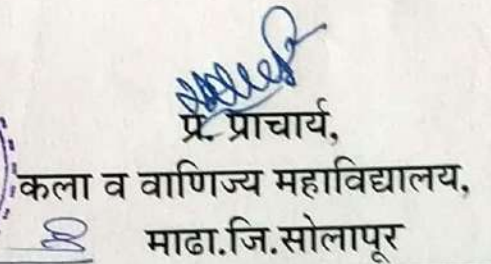 प्र. प्राचार्य,
कला व वाणिज्य महाविद्यालय,
माढा.जि.सोलापूर